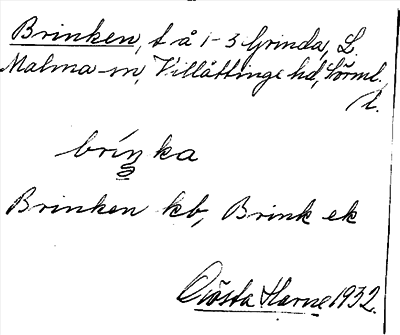 Brinken, t å 1-3 Grinda, L.
Malma sn, Villåttinge hd, Sörml.
l.
bríṇka
Brinken kb, Brink ek
Gösta Harne 1932.